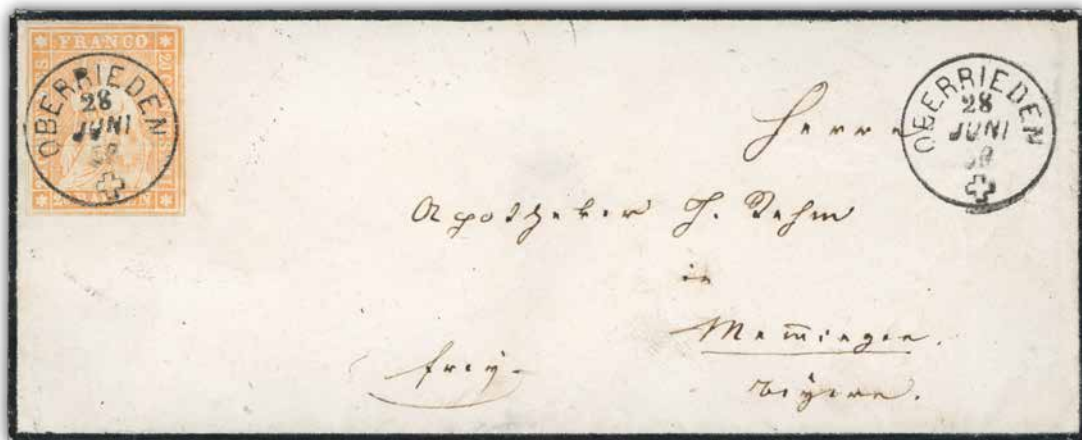 FRANCO
OBERRIEDEN
28
JUNI
OBERRIEDEN
28
JUNI
Herrn
Apotheker J. Rehm
in
Mem̄ingen.
Bayern.
frey.